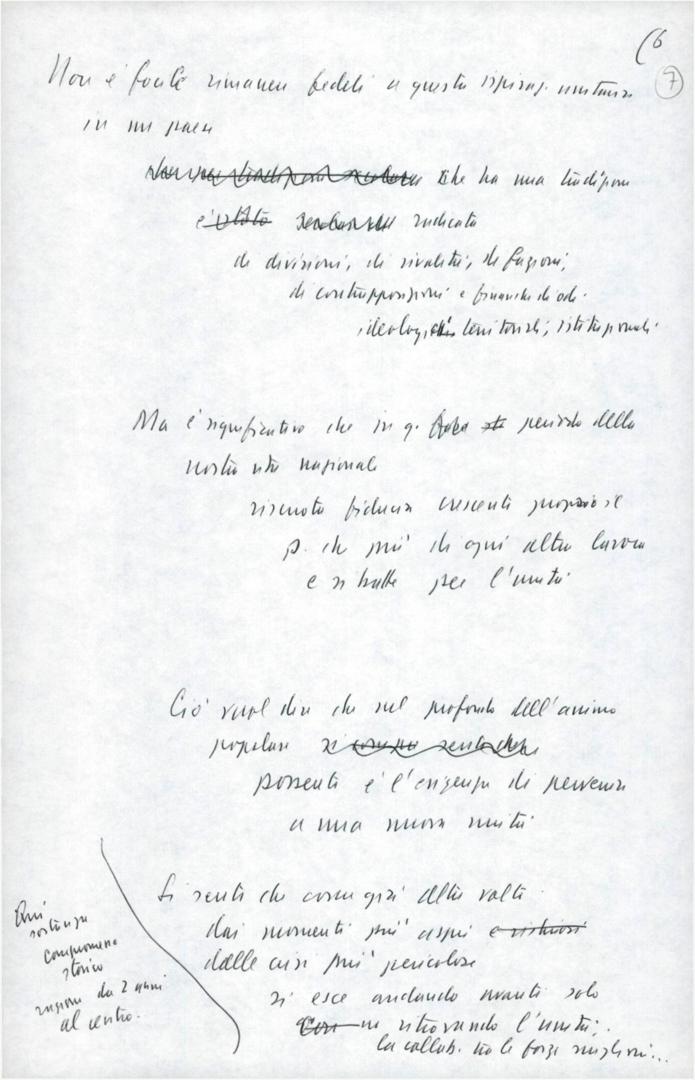 6
7
Non è facile rimanere fedeli a questa ispiraz. unitaria
in un paese
che ha una tradizione
è stato secolarmente radicata
di divisioni, di rivalità, di fazioni,
di contrapposizioni e finanche di odi
ideologici territoriali, istituzionali
Ma è significativo che in q. periodo della
nostra vita nazionale
riscuota fiducia crescente proprio il
p. che più di ogni altro lavora
e si batte per l'unità
Ciò vuol dire che nel profondo dell'animo
popolare si
possente è l'esigenza di pervenire
a una nuova unità
Si sente che come già altre volte
dai momenti più aspri e rischiosi
dalle crisi più pericolose
si esce andando avanti solo
Con ritrovando l'unità,
la collab. tra le forze migliori...
Qui
sostanza
compromesso
storico
da 2 anni
al centro.